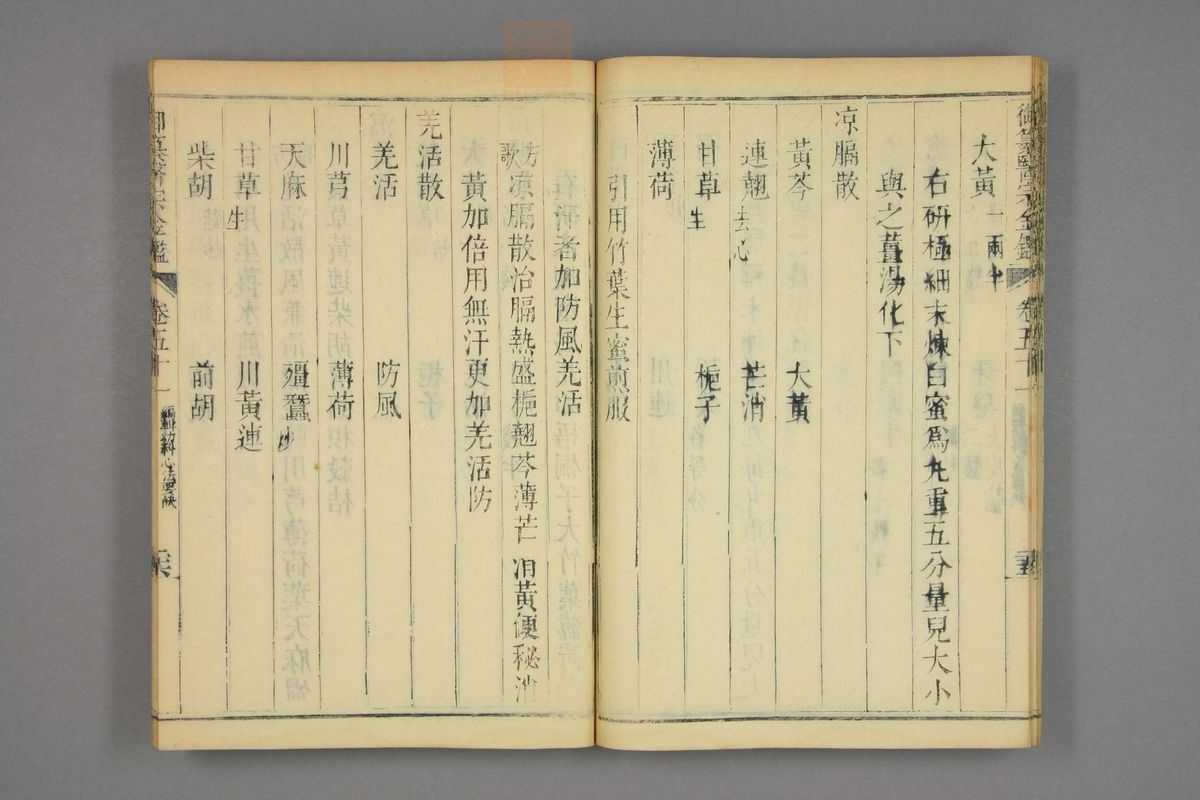 御纂醫宗金鑑 卷五十一
大黃一兩半
右研極細末煉白蜜爲丸重五分量兒大小
與之薑湯化下
凉膈散
黃芩 大黃
連翹去心 芒消
甘草生 梔子
薄荷
引用竹葉生蜜煎服
淋者加防風羌活
方歌 凉膈散治膈熱盛梔翹芩薄芒消黃便秘消
黃加倍用無汗更加羌活防
羌活散
羌活 防風
川芎 薄荷
天麻 殭蠶炒
甘草生 川黃連
柴胡 前胡
御纂醫宗金鑑 卷五十一 編輯幼科心法要訣